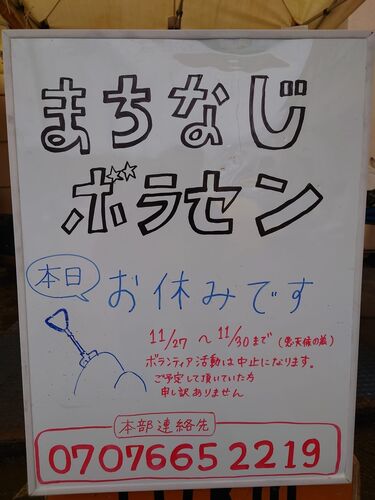 まちなじ
ボラセン
本日
お休みです
11/27 〜 11/30まで (悪天候の為)
ボランティア活動は中止になります。
ご予定して頂いていた方
申し訳ありません
本部連絡先
07076652219